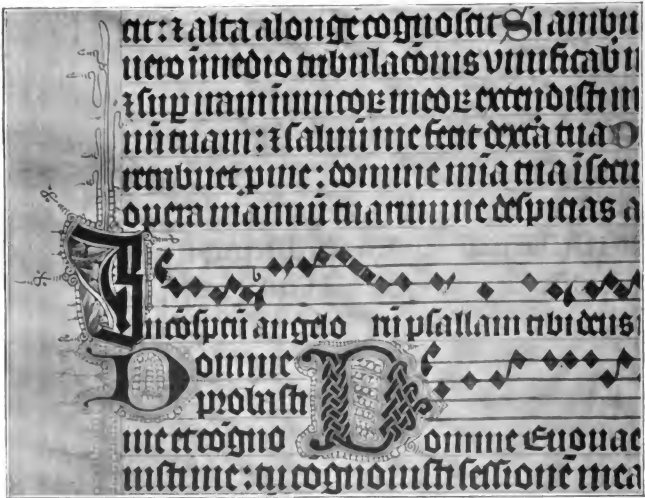 cit: ⁊ alta a longe cognoscit Si ambu
uero ī medio tribulacōnis viuificab
⁊ sup iram inimicoꝝ meoꝝ extendisti
nū tuam: ⁊ saluū me fecit dextā tua
retribuet p me: domine mīa tua ī secu
opera manuū tuarum ne despicias a
In cōspcū angelo rū psallam tibi deus
Domine
probasti
me et cogno Domine Euouae
uisti me: tu cognouisti sessionē mea